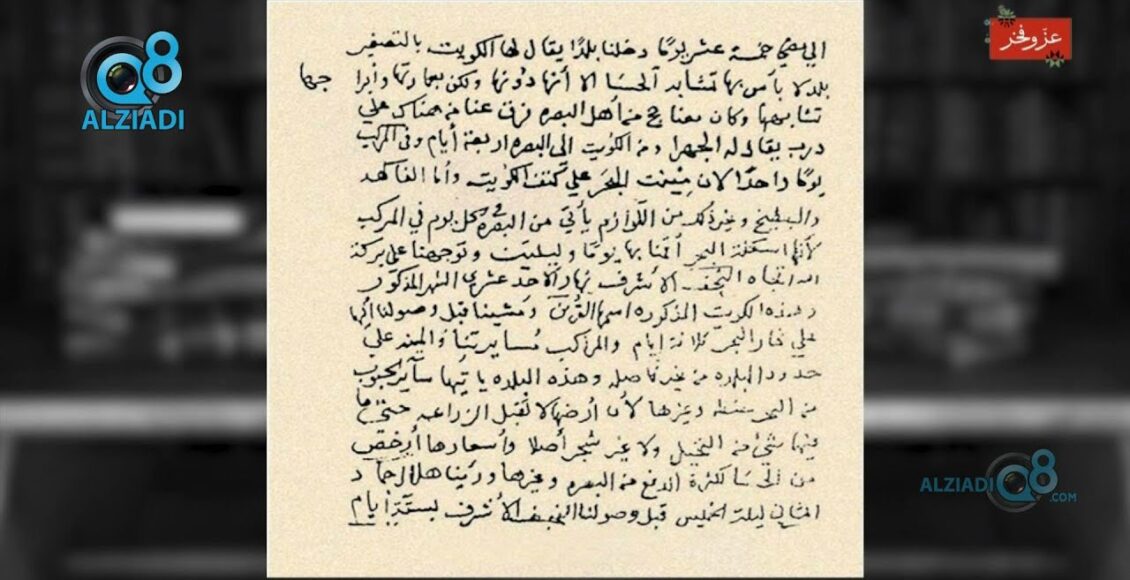 Q8
ALZIADI
عزّ وفخر
دخلنا بلدًا يقال لها الكويت بالتصغير
بلد لا بأس بها تشابه الحسا الا أنها دونها ولكن بعمارتها وأبراجها
تشابهها وكان معنا حج من أهل البصره فرق عنا من هناك علي
درب يقال له الجهرا ومن الكويت الي البصره اربعة أيام وفي المركب
يومًا واحدًا لان مينت البحر علي كتف الكويت وأما الفاكهه
والبطيخ وغير ذلك من اللوازم يأتي من البصره في كل يوم في المركب
لأنها اسكلة البحر أقمنا بها يومًا وليلتين وتوجهنا علي بركة
الله اتجاه النجف الأشرف نهار الأحد عشر من الشهر المذكور
وهذه الكويت المذكوره اسمها القرين ومشينا قبل وصولنا إليها
علي كنار البحر ثلاثة ايام والمراكب مسايرتنا والمينه علي
حدود البلده من غير فاصله وهذه البلده يأتيها سائر الحبوب
من البحر حنطه وغيرها لأن أرضها لا تقبل الزراعه حتي ما
فيها شيئ من النخيل ولا غير شجر أصلا وأسعارها أرخص
من الحسا لكثرة الدفع من البصره وغيرها ورئينا هلال جماد
الثاني ليلة الخميس قبل وصولنا النجف الأشرف بستة أيام
ALZIADIQ8
.COM